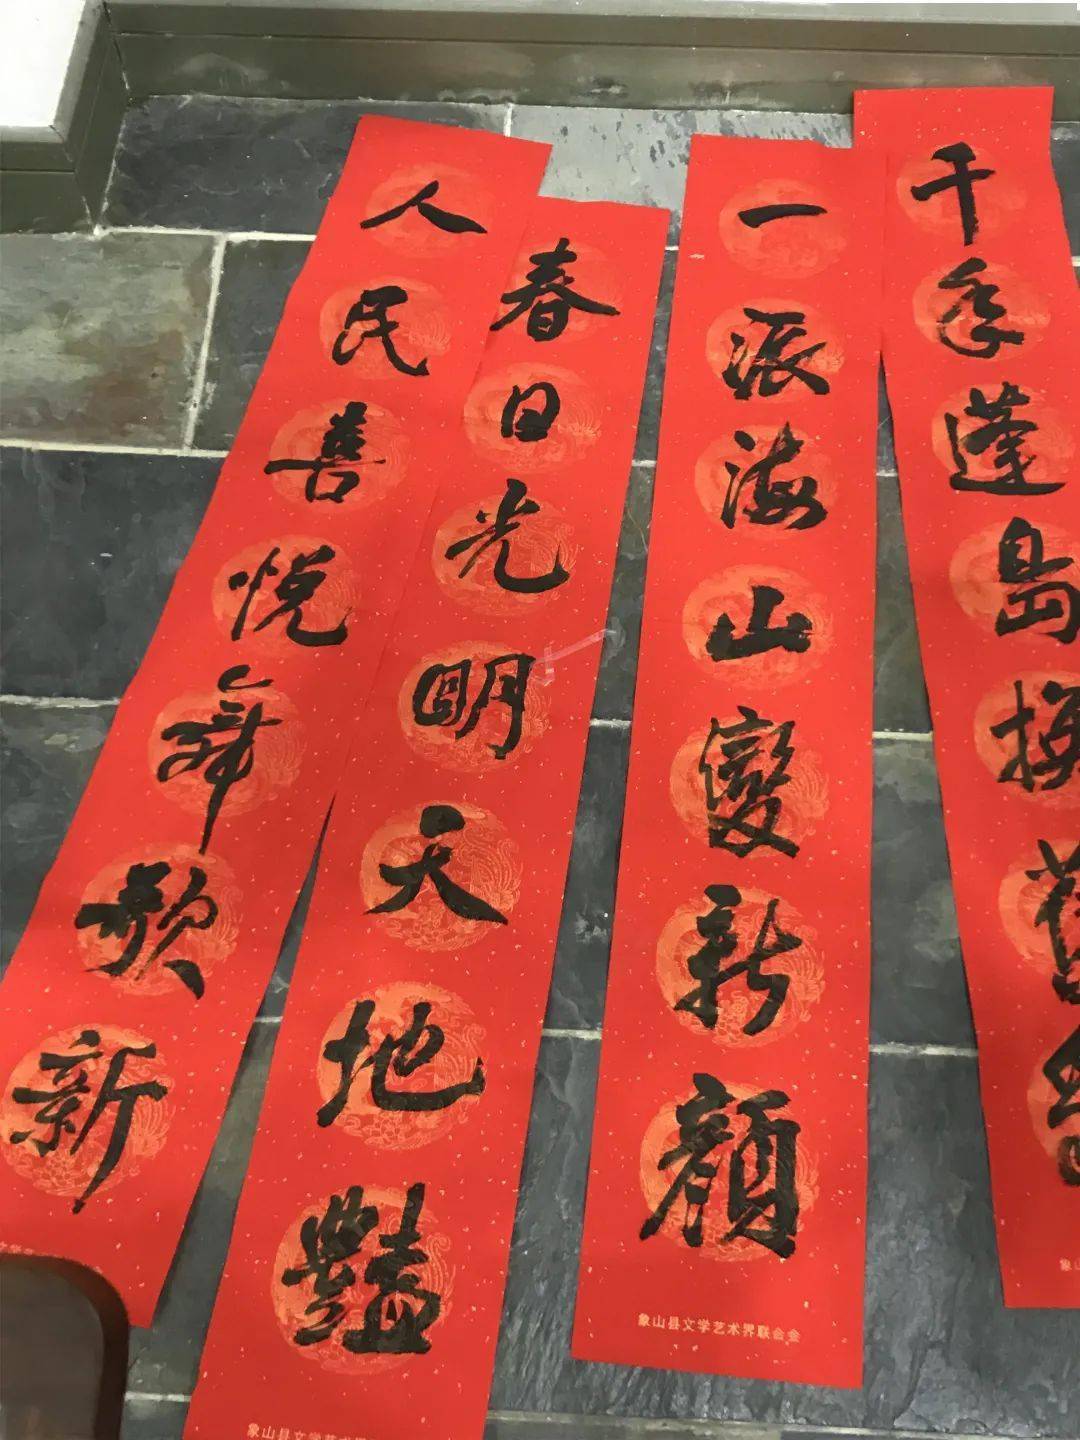 千年蓬島換舊
象山
一派海山變新顔
象山县文学艺术界联合会
春日光明天地豔
象山县文学艺术界
人民喜悦舞歌新
文学